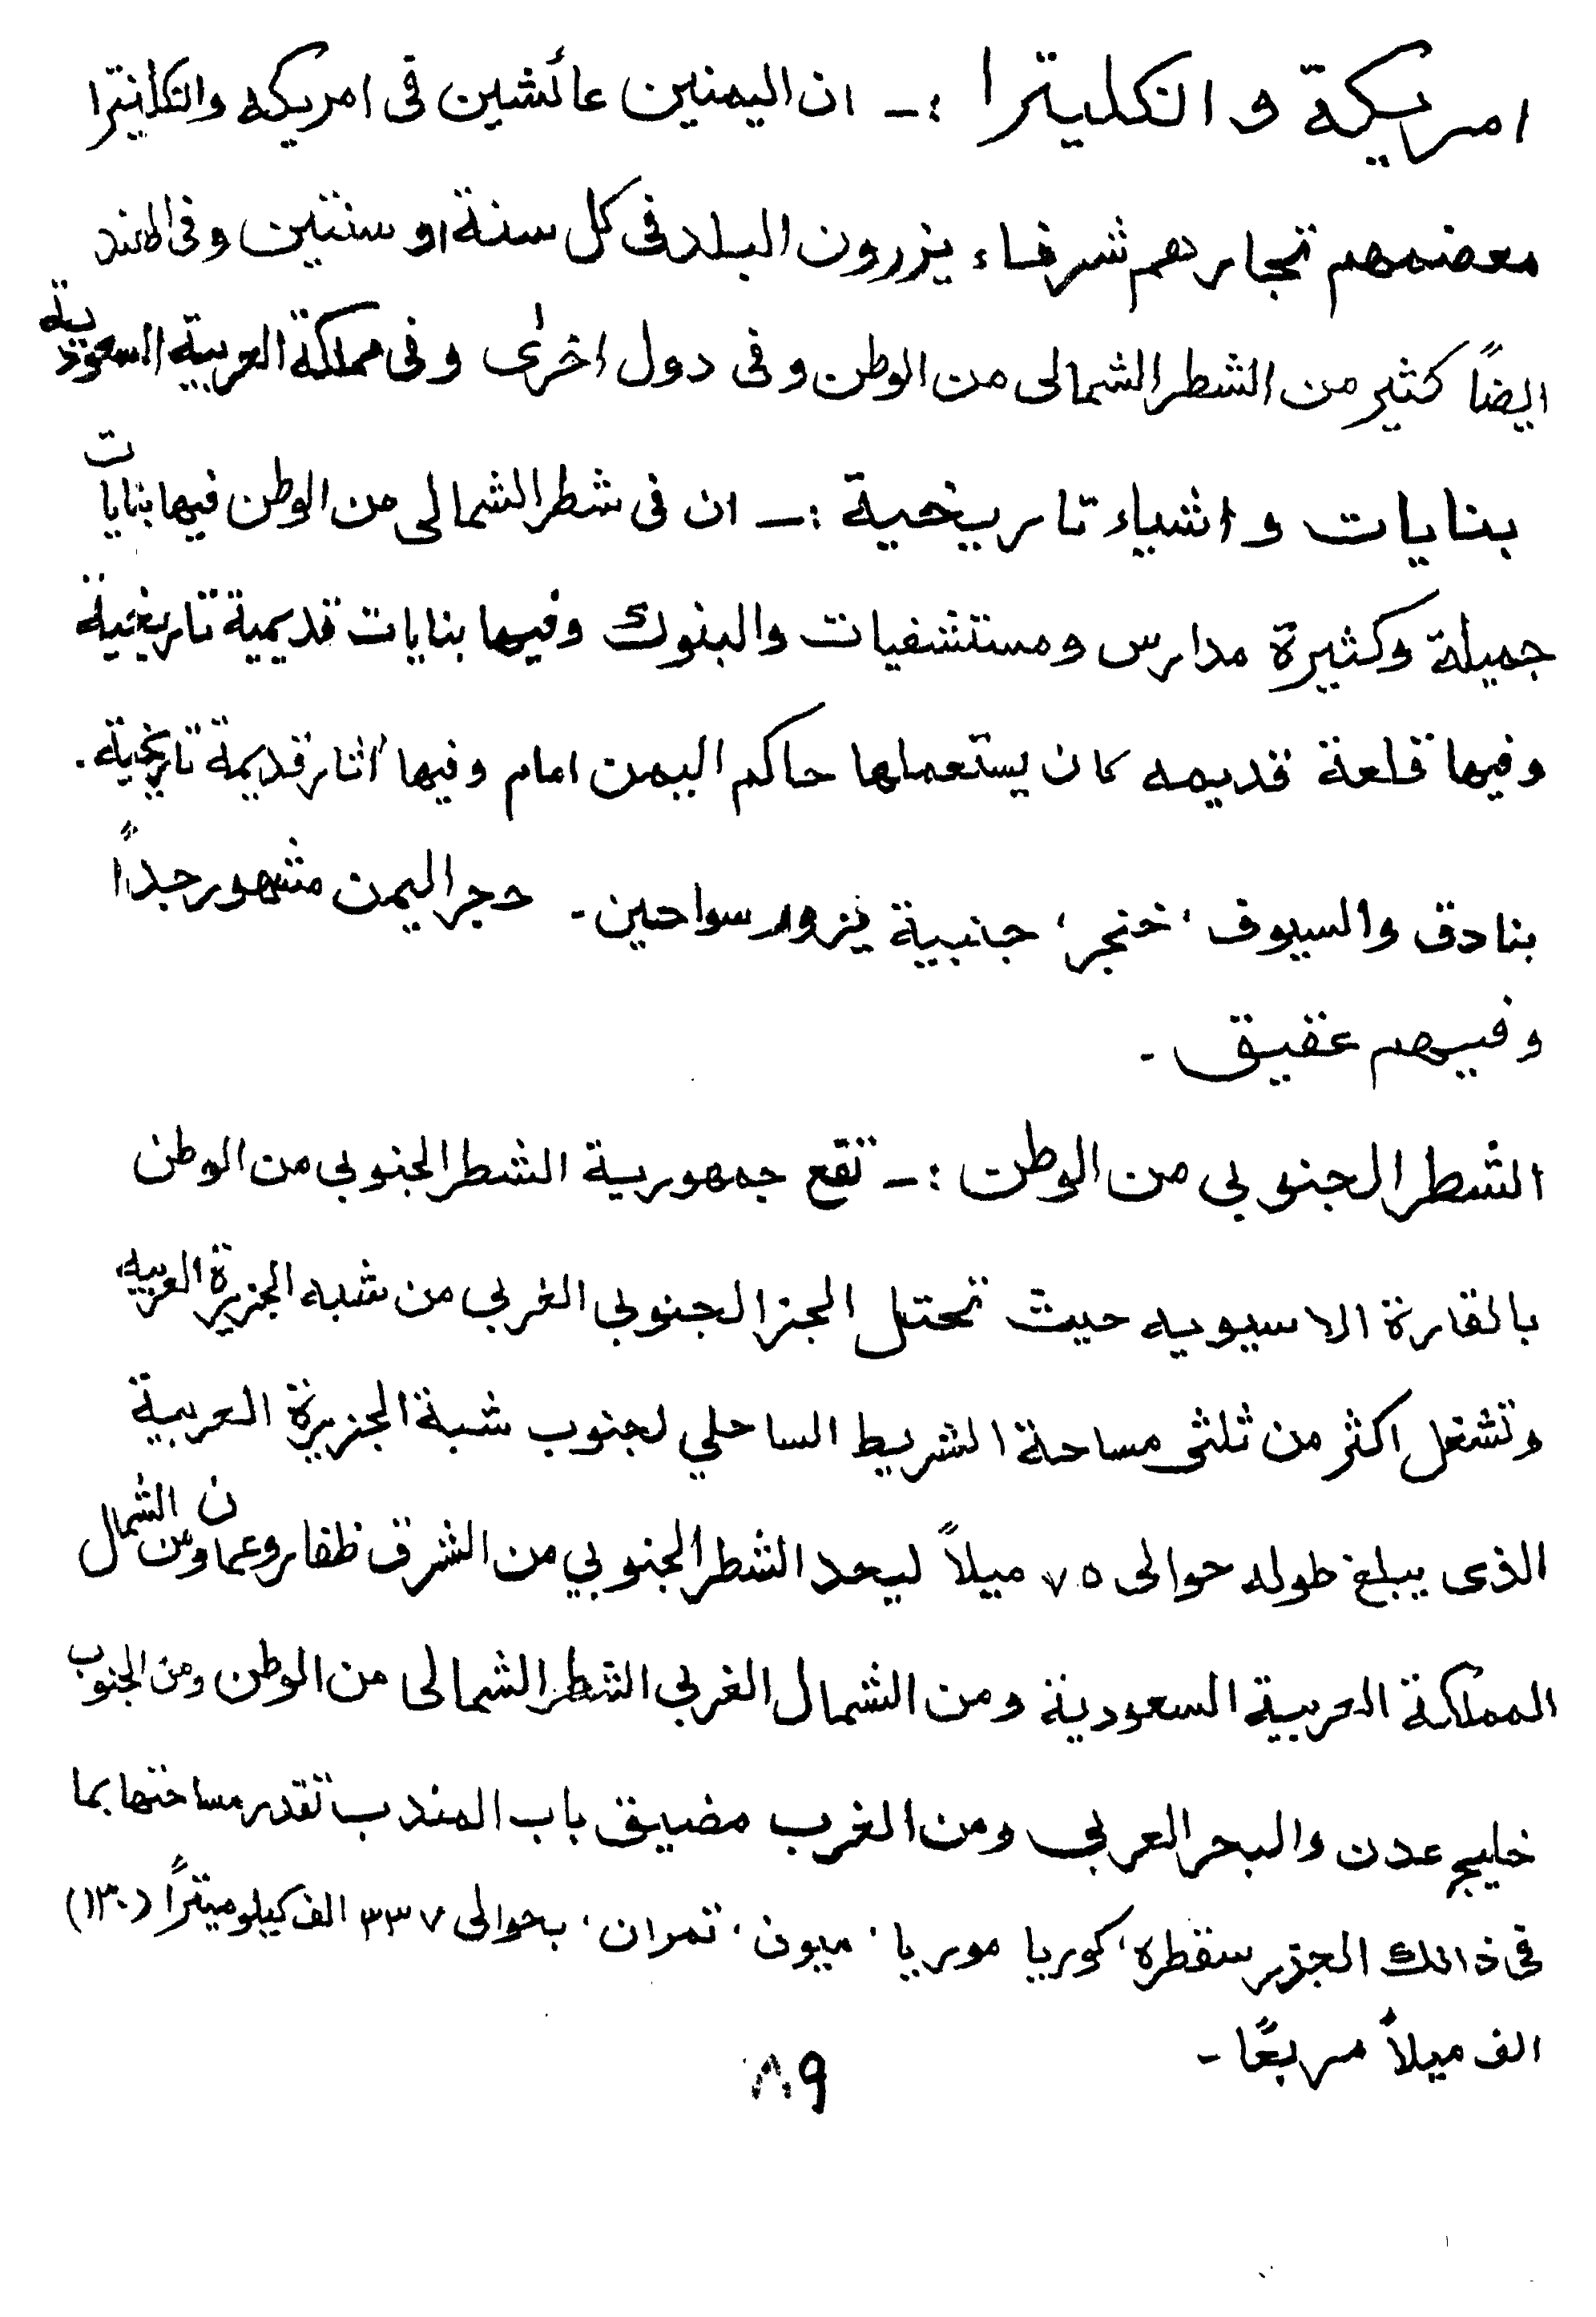 امريكة و انكليترا :ـ ان اليمنين عائشين فى امريكه وانكليترا
معضمهم تجار هم شرفاء يزرون البلد فى كل سنة او سنتين وفى الهند
ايضاً كثير من الشطر الشمالى من الوطن وفى دول اخرٰى وفى مملكة العربية السعودية
بنايات و اشياء تاريخية :ـ ان فى شطر الشمالى من الوطن فيها بنايات
جميلة وكثيرة مدارس ومستشفيات والبنوك وفيها بنايات قديمية تاريخية
وفيها قلعة قديمه كان يستعملها حاكم اليمن امام وفيها اثار قديمة تاريخية.
بنادق والسيوف، خنجر، جنبية يزور سواحين ـ حجر اليمن مشهور جداً
وفيهم عقيق ـ
الشطر الجنوبى من الوطن :ـ تقع جمهورية الشطر الجنوبى من الوطن
بالقارة الاسيويه حيث تحتل الجز الجنوبى الغربي من شبه الجزيرة العربيه
وتشغل اكثر من ثلثى مساحة الشريط الساحلي لجنوب شبة الجزيرة العربية
الذى يبلغ طوله حوالى ٧٥٠ ميلاً ليحد الشطر الجنوبي من الشرق ظفار وعمان ومن الشمال
المملكة العربية السعودية ومن الشمال الغربي الشطر الشمالى من الوطن ومن الجنوب
خليج عدن والبحر العربي ومن الغرب مضيق باب المندب تقدر مساحتها بما
فى ذالك الجزر سقطره، كوريا موريا، ميون، تمران، بحوالى ٣٣٧ الف كيلو ميتراً (١٣٠)
الف ميلاً مربعًا ـ
٨٩